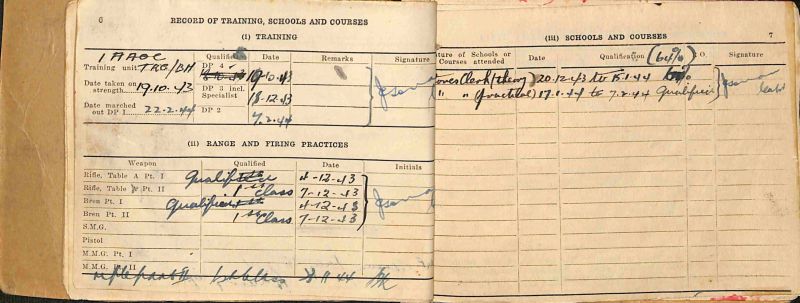 6
RECORD OF TRAINING, SCHOOLS AND COURSES
(i) TRAINING
Qualified Date Remarks Signature
Training unit TRG/BH DP 4 19.10.43
Date taken on strength 19.10.43 DP 3 incl. Specialist 18.12.43
Date marched out DP I 22.2.44 DP 2 7.2.44
(ii) RANGE AND FIRING PRACTICES
Weapon Qualified Date Initials
Rifle, Table A Pt. I Qualified 4-12-43
Rifle, Table Pt. II 1st Class 7-12-43
Bren Pt. I Qualified 4-12-43
Bren Pt. II 1st Class 7-12-43
S.M.G.
Pistol
M.M.G. Pt. I
M.M.G. Pt. II
Rifle part II 1st class 8 11 44
7
(iii) SCHOOLS AND COURSES
ture of Schools or Courses attended Date Qualification (64%) .O. Signature
ores Clerk (theory) 20.12.43 to 15.1.44
" " (practical) 17.1.44 to 7.2.44 Qualified